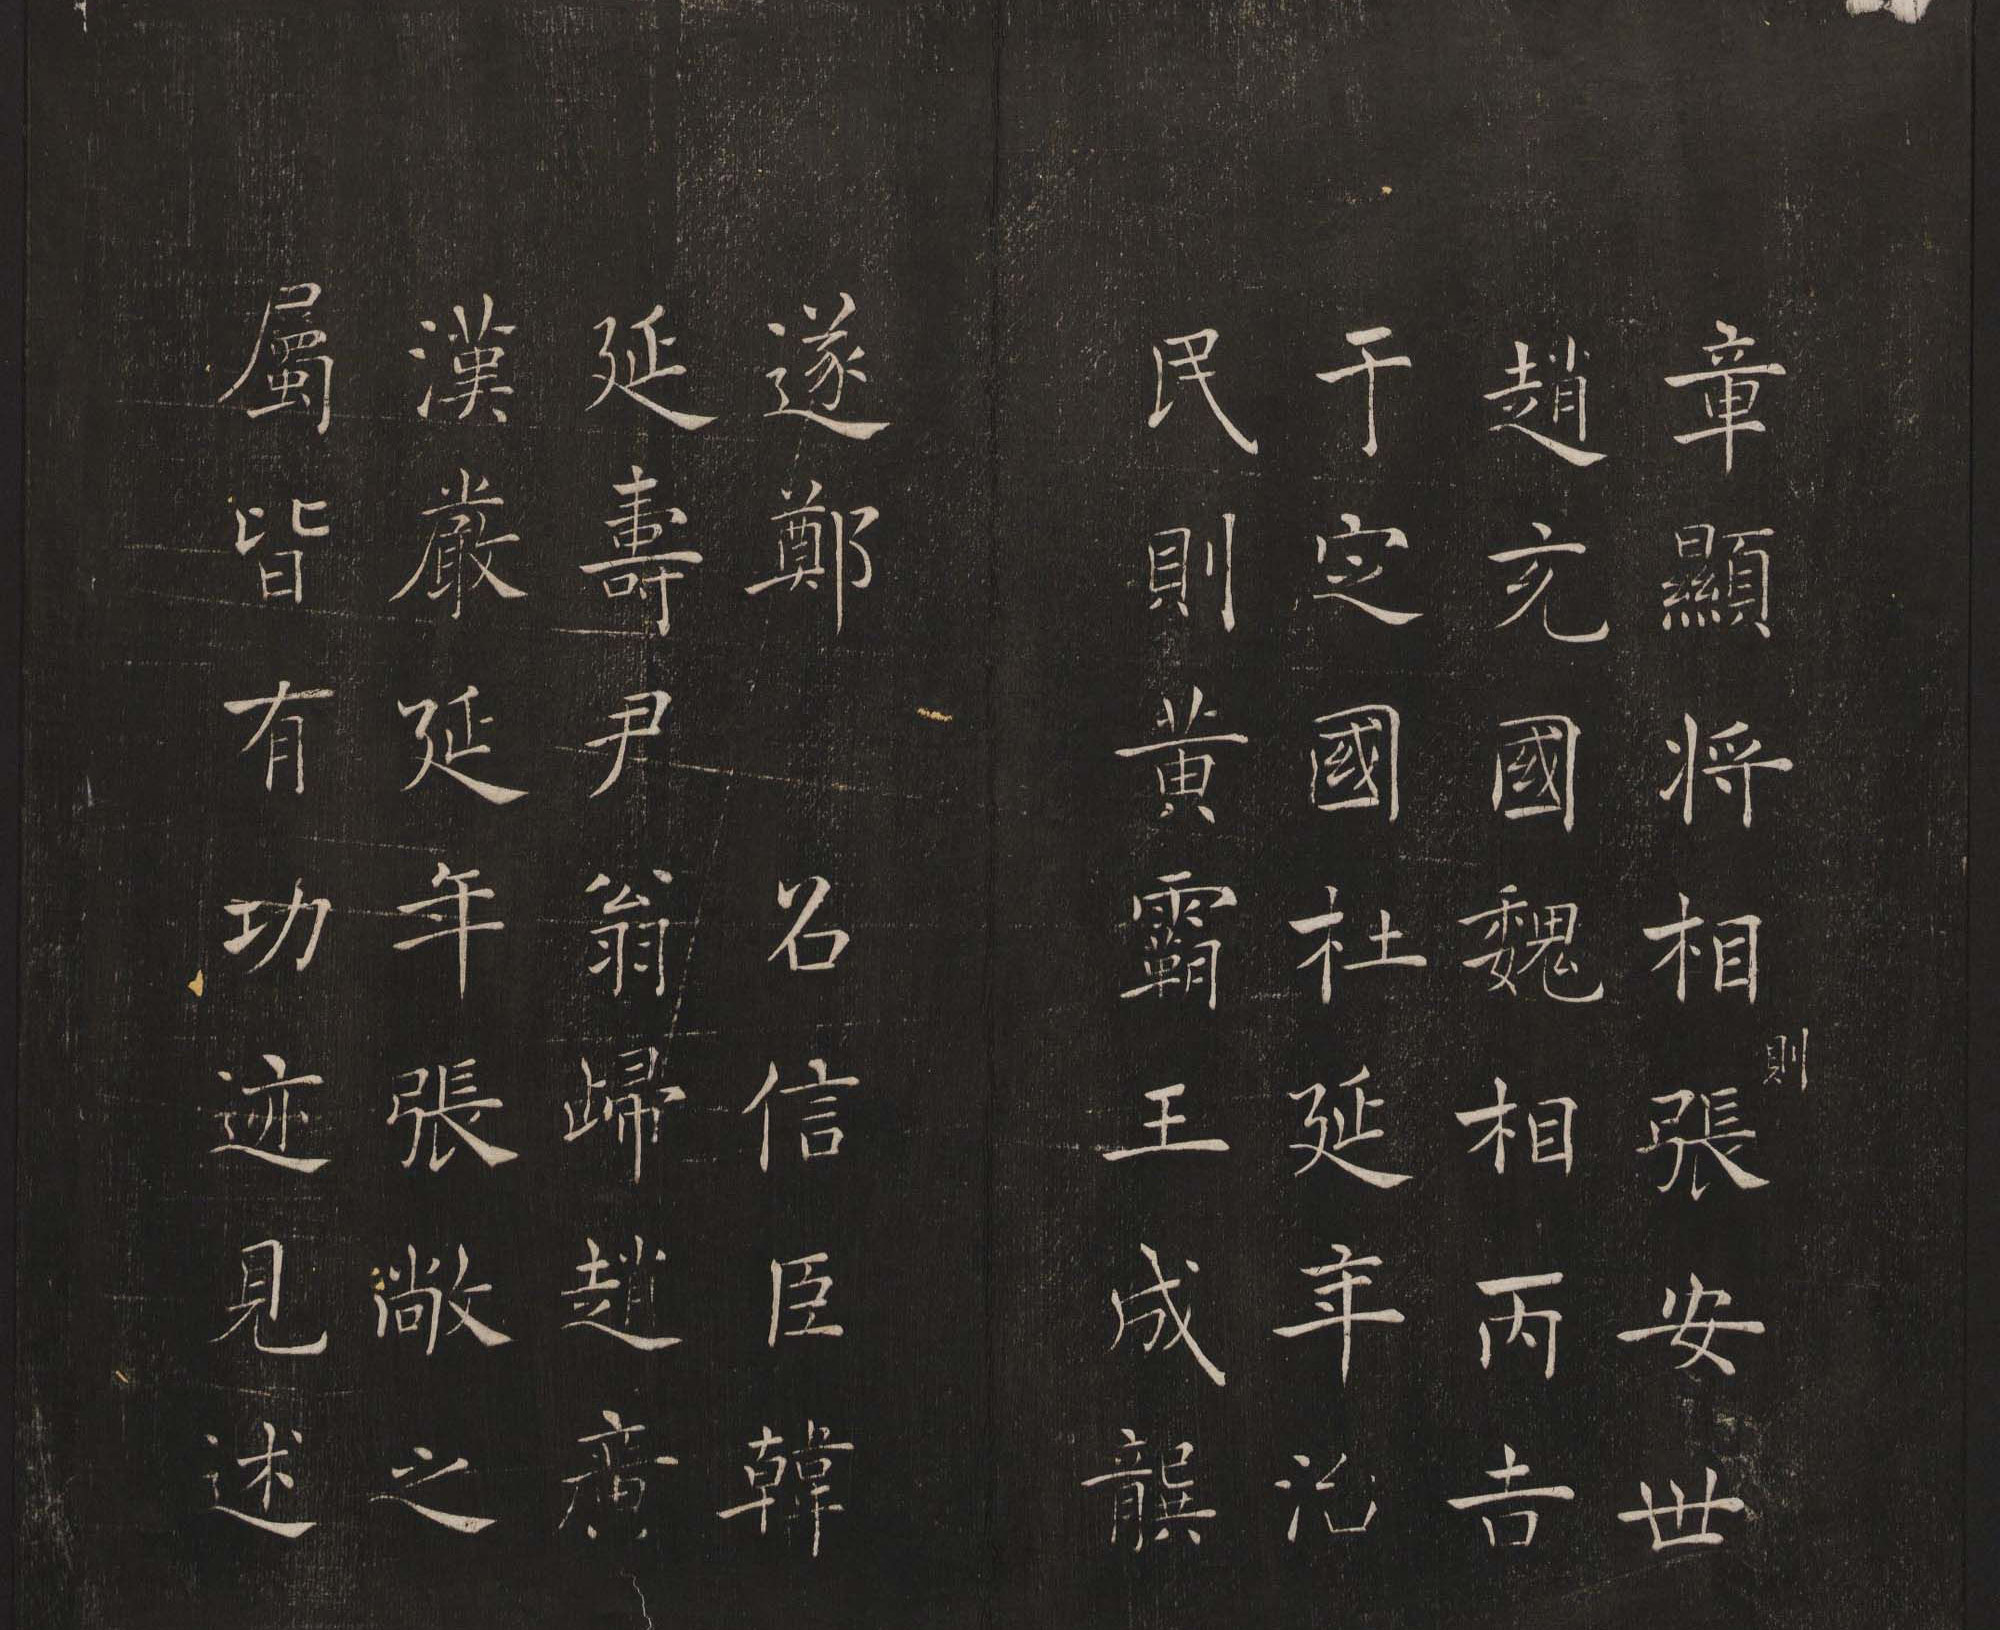 章顯將相張安世
則
趙充國魏相丙吉
于定國杜延年治
民則黃霸王成龔
遂鄭 召信臣韓
延壽尹 翁歸趙廣
漢嚴延年張敞之
屬皆有功迹見述